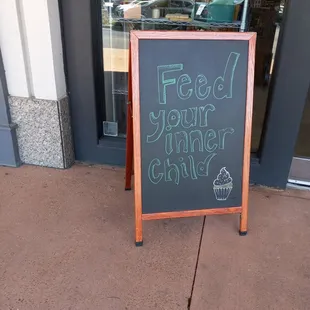 Feed
your
inner
child